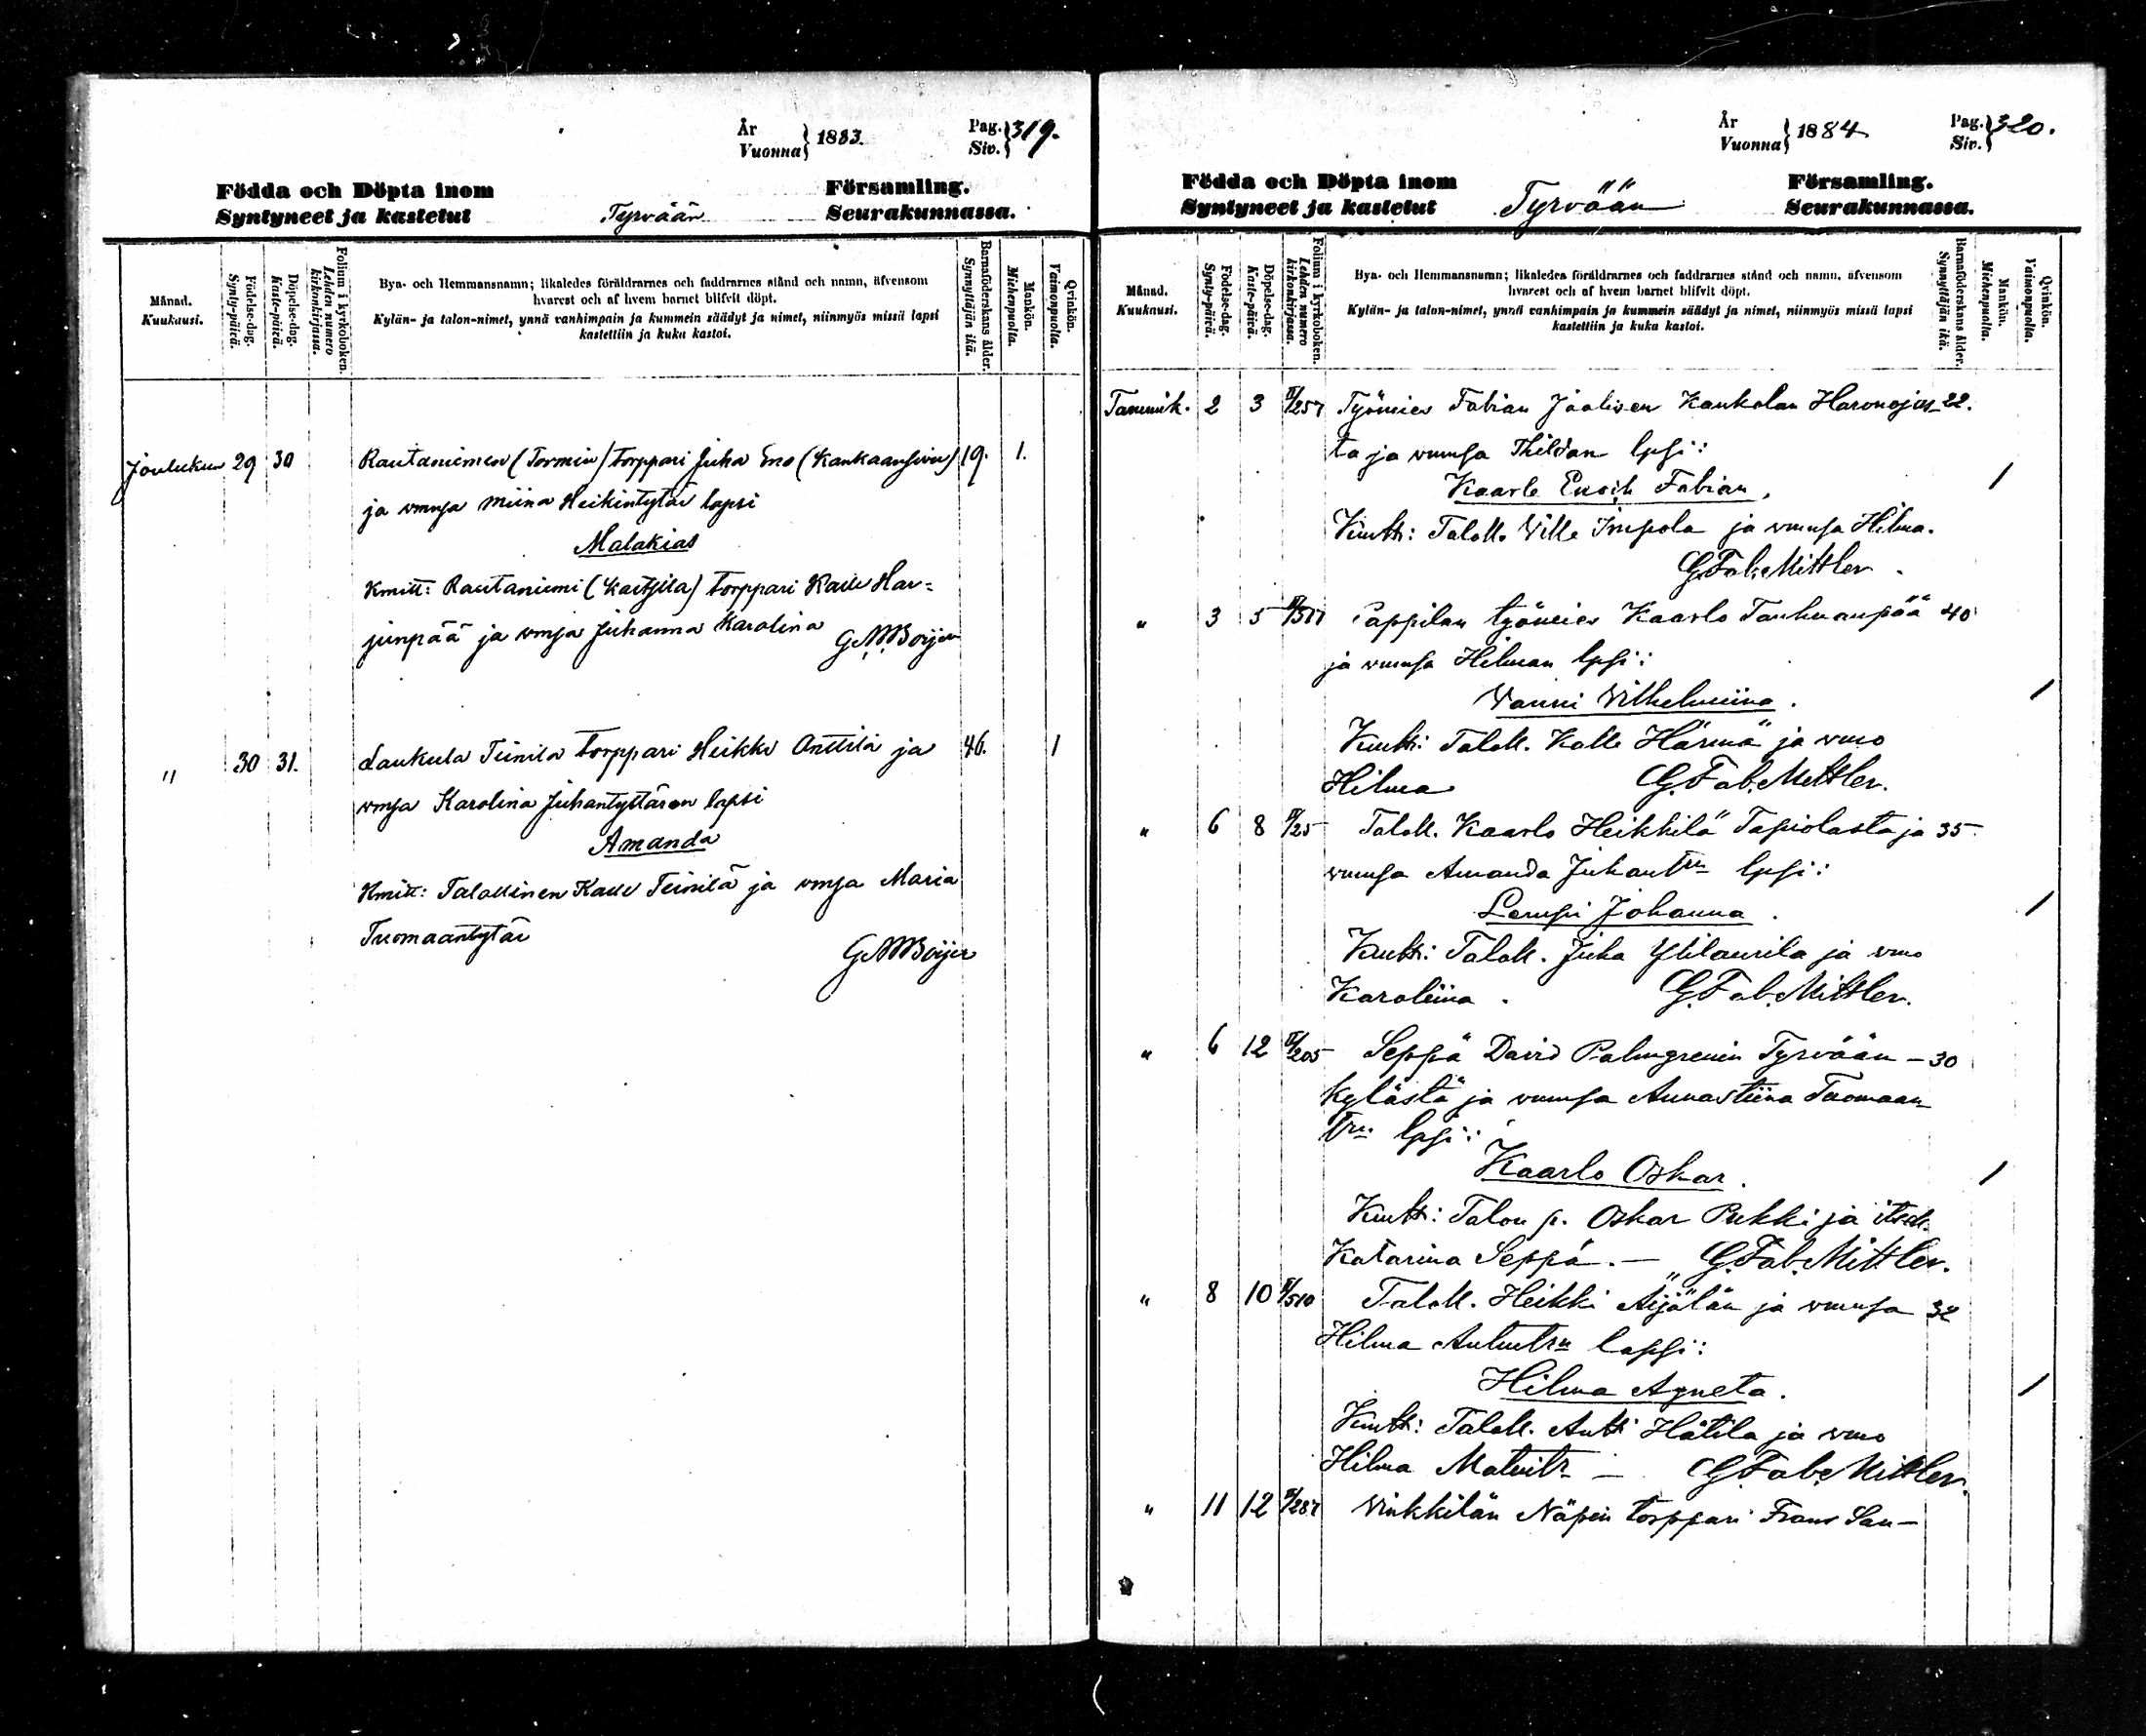 År
Vuonna } 1883.
Pag.
Siv. } 319.
Födda och Döpta inom Församling.
Syntyneet ja kastetut Tyrvään Seurakunnassa.
Månad.
Kuukausi.
Födelse-dag.
Synty-päivä.
Döpelse-dag.
Kaste-päivä.
Folium i kyrkoboken.
Lehden numero
kirkonkirjassa.
Bya- och Hemmansnamn; likaledes föräldrarnes och faddrarnes stånd och namn, äfvensom
hvarest och af hvem barnet blifvit döpt.
Kylän- ja talon-nimet, ynnä vanhimpain ja kummein säädyt ja nimet, niinmyös missä lapsi
kastettiin ja kuka kastoi.
Barnaföderskans ålder.
Synnyttäjän ikä.
Mankön.
Miehenpuolta.
Qvinkön.
Vaimonpuolta.
Joulukuu 29 30 Rautaniemen (Tormin) torppari Juha Eno 19. 1.
ja vmsa Miina Heikintytär lapsi
Malakias
Kmitt: Rautaniemi (Kaitsila) torppari Kalle Har=
junpää ja vmsa Juhanna Karolina
" 30 31. Laukula Teinilä torppari Heikki Anttila ja 46. 1
vmsa Karolina Juhantyttären lapsi
Amanda
Kmitt: Talollinen Kalle Teinilä ja vmsa Maria
Tuomaantytär
År
Vuonna } 1884
Pag.
Siv. } 320.
Födda och Döpta inom Församling.
Syntyneet ja kastetut Tyrvään Seurakunnassa.
Månad.
Kuukausi.
Födelse-dag.
Synty-päivä.
Döpelse-dag.
Kaste-päivä.
Folium i kyrkoboken.
Lehden numero
kirkonkirjassa.
Bya- och Hemmansnamn; likaledes föräldrarnes och faddrarnes stånd och namn, äfvensom
hvarest och af hvem barnet blifvit döpt.
Kylän- ja talon-nimet, ynnä vanhimpain ja kummein säädyt ja nimet, niinmyös missä lapsi
kastettiin ja kuka kastoi.
Barnaföderskans ålder.
Synnyttäjän ikä.
Mankön.
Miehenpuolta.
Qvinkön.
Vaimonpuolta.
Tammik. 2 3 Työmies Fabian Jaalisen Kaukolan 22.
ta ja vmnsa Thildan lpsi:
Kaarle Enoch Fabian, 1
Kmtt: Taloll. Ville ja vmnsa Hilma.
G. Fab. Mittler.
" 3 5 Pappilan työmies Kaarlo Tanhuanpää 40
ja vmnsa Hilman lpsi:
Vanni Vilhelmiina. 1
Kmtt: Taloll. Kalle Härmä ja vmo
Hilma G. Fab. Mittler.
" 6 8 Taloll. Kaarlo Heikkilä Tapiolasta ja 35
vmnsa Amanda Juhantrn lpsi:
Lempi Johanna. 1
Kmtt: Taloll. Juha Ylilaurila ja vmo
Karoliina. G. Fab. Mittler.
" 6 12 Seppä David Palmgrenin Tyrvään – 30
kylästä ja vmnsa Annastiina Tuomaan
trn lpsi:
Kaarlo Oskar. 1
Kmtt: Talon p. Oskar Pukki ja itsell.
Katarina Seppä. – G. Fab. Mittler.
" 8 10 Taloll. Heikki Äijälän ja vmnsa 32
Hilma lapsi:
Hilma Agneta. 1
Kmtt: Taloll. Antti Hätilä ja vmo
Hilma – G. Fab. Mittler.
" 11 12 Vinkkilän Näpin torppari Frans San–